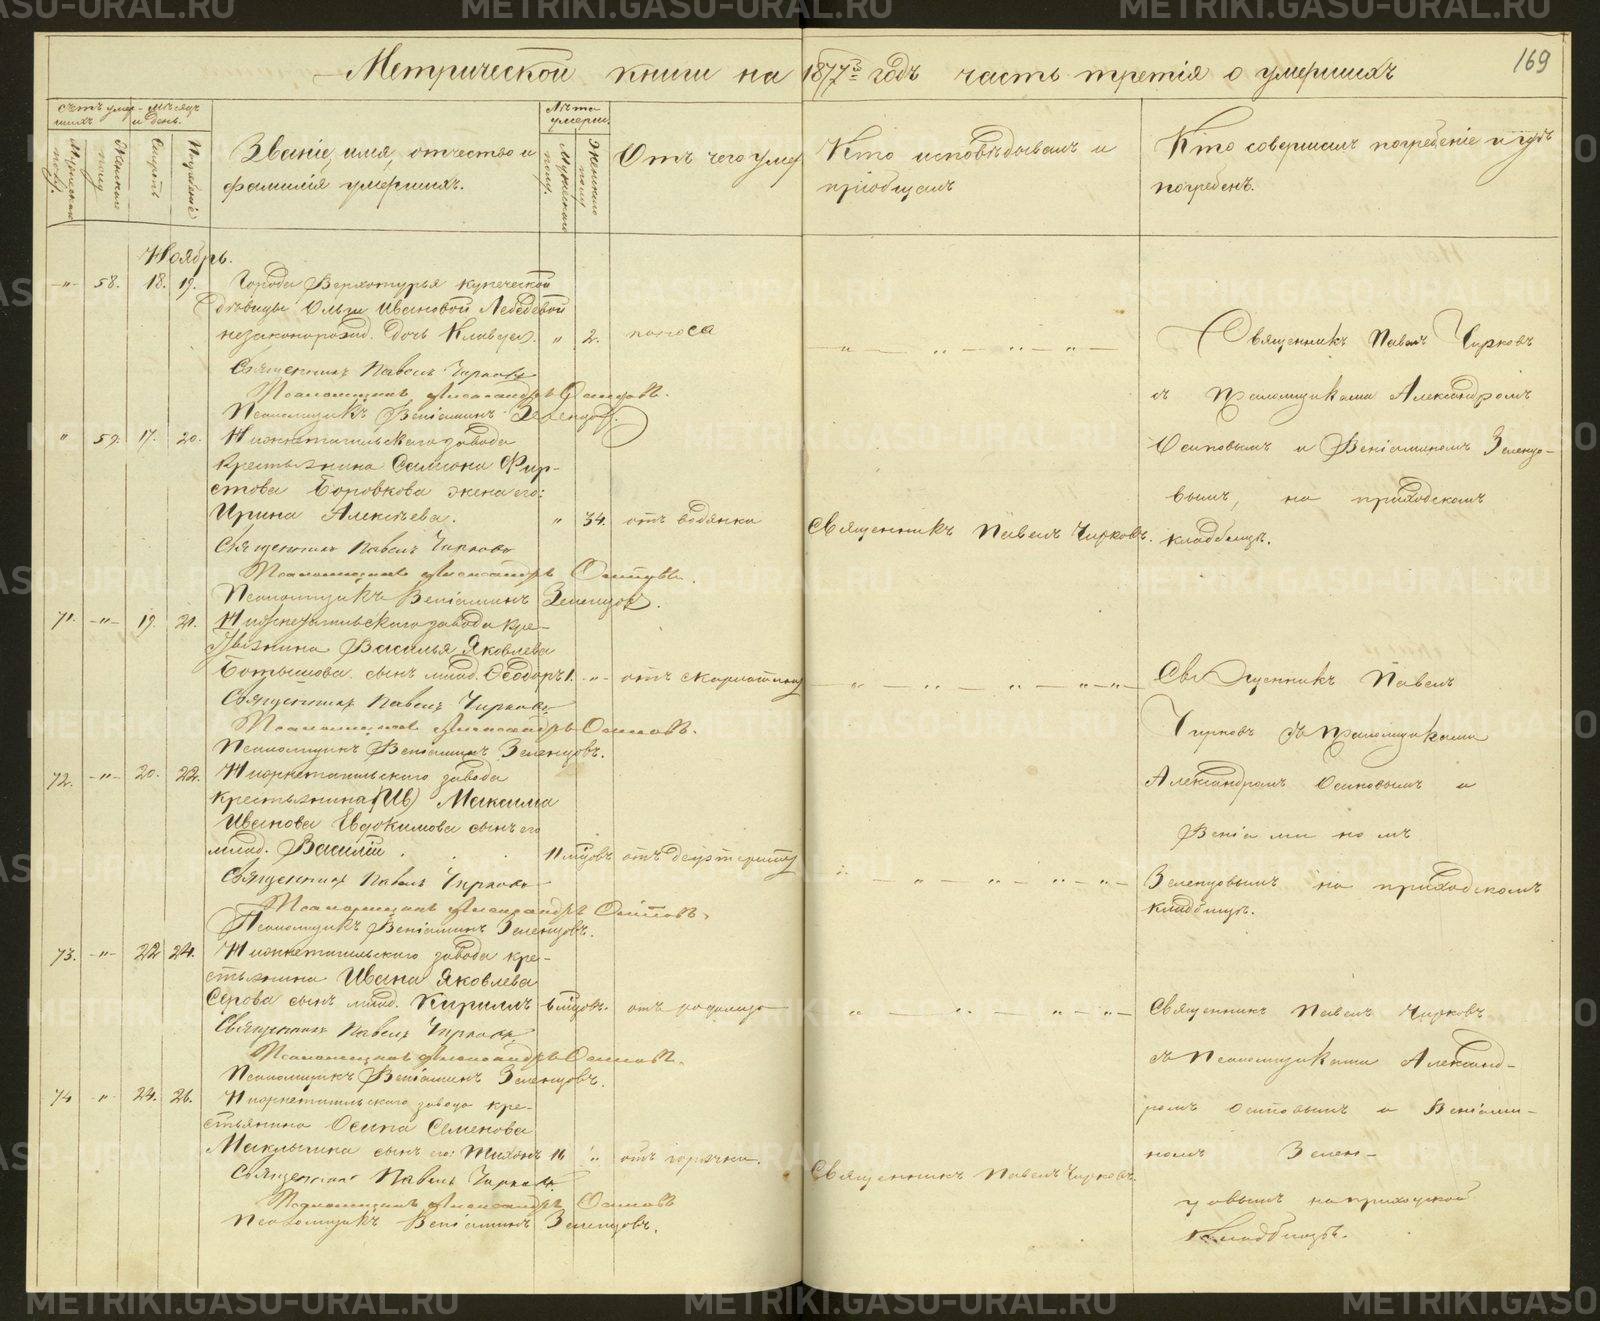 169
Метрической книги на 1877й годъ часть третія о умершихъ
Счетъ умершихъ
Мѣсяцъ и день.
Мужескаго полу.
Женскаго полу
Смерть
Погребеніе
Званіе, имя, отчество и
фамилія умершихъ.
Лѣта умерш.
Мужескаго полу.
Женскаго полу
Отъ чего умер
Кто исповѣдывалъ и
пріобщалъ
Кто совершалъ погребеніе и гдѣ
погребенъ.
Ноябрь.
-"- 58. 18. 19. Города Верхотурья купеческой
дѣвицы Ольги Ивановой Лебедевой
незаконорожд. дочь Клавдія. " 2. поноса
Священникъ Павелъ Чирковъ
Псаломщикъ Александръ Осиповъ.
Псаломщикъ Веніаминъ Зеленцовъ.
Священникъ Павелъ Чирковъ
съ Псаломщиками Александромъ
Осиповымъ и Веніаминомъ Зеленцо-
вымъ, на приходскомъ
кладбищѣ.
" 59. 17. 20. Нижнетагильскаго завода
крестьянина Самсона Фир-
стова Боровкова жена его:
Ирина Алексѣева. " 34. отъ водянки
Священникъ Павелъ Чирковъ.
Священникъ Павелъ Чирковъ
Псаломщикъ Александръ Осиповъ.
Псаломщикъ Веніаминъ Зеленцовъ.
71. -"- 19. 21. Нижнетагильскаго завода кре-
стьянина Василья Яковлева
сынъ млад. Ѳеодоръ 1. -"- отъ скарлатины
Священникъ Павелъ Чирковъ
Псаломщикъ Александръ Осиповъ.
Псаломщикъ Веніаминъ Зеленцовъ.
Священникъ Павелъ
Чирковъ съ Псаломщиками
Александромъ Осиповымъ и
Веніаминомъ
Зеленцовымъ на приходскомъ
кладбищѣ.
72. -"- 20. 22. Нижнетагильскаго завода
крестьянина (Ив) Максима
Иванова Евдокимова сынъ его
млад. Василій 11 мцовъ отъ
Священникъ Павелъ Чирковъ
Псаломщикъ Александръ Осиповъ.
Псаломщикъ Веніаминъ Зеленцовъ.
73. -"- 22 24. Нижнетагильскаго завода кре-
стьянина Ивана Яковлева
Серова сынъ млад. Кириллъ 6 мцовъ. отъ родимца
Священникъ Павелъ Чирковъ
Псаломщикъ Александръ Осиповъ.
Псаломщикъ Веніаминъ Зеленцовъ.
Священникъ Павелъ Чирковъ
съ Псаломщиками Александ-
ромъ Осиповымъ и Веніами-
номъ Зелен-
цовымъ на приходской
кладбищѣ.
74 -"- 24. 26. Нижнетагильскаго завода кре-
стьянина Осипа Семенова
Маклыгина сынъ его: Тихонъ 16 " отъ горячки.
Священникъ Павелъ Чирковъ.
Священникъ Павелъ Чирковъ
Псаломщикъ Александръ Осиповъ
Псаломщикъ Веніаминъ Зеленцовъ.
METRIKI.GASU-URAL.RU